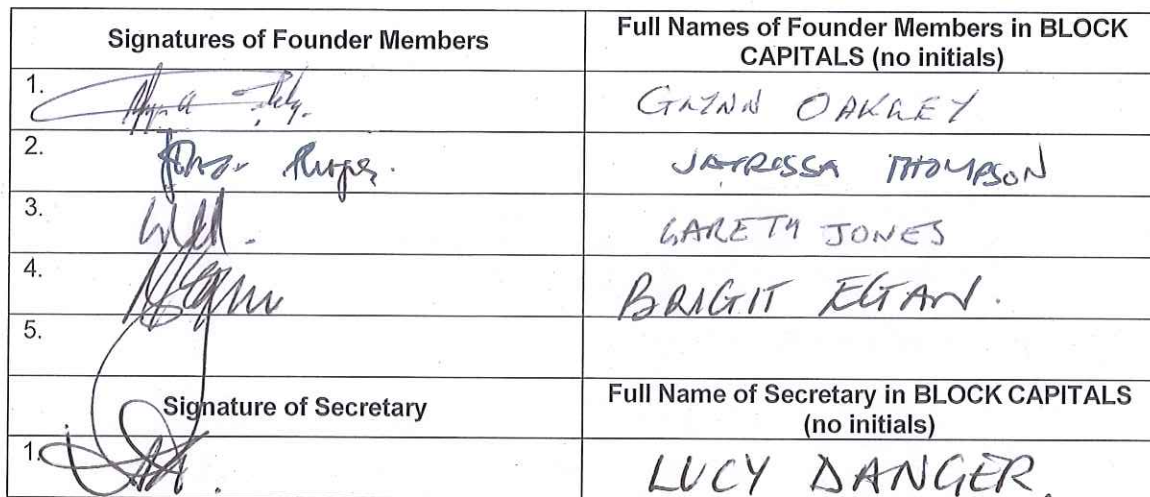 Signatures of Founder Members
Full Names of Founder Members in BLOCK
CAPITALS (no initials)
1.
GLYNN OAKLEY
2.
THOMPSON
3.
GARETH JONES
4.
BRIGIT EGAN.
5.
Signature of Secretary
Full Name of Secretary in BLOCK CAPITALS
(no initials)
1.
LUCY DANGER.